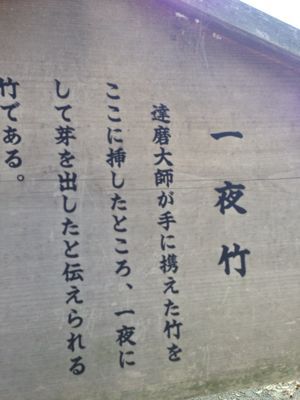 一夜竹
達磨大師が手に携えた竹を
ここに挿したところ、一夜に
して芽を出したと伝えられる
竹である。